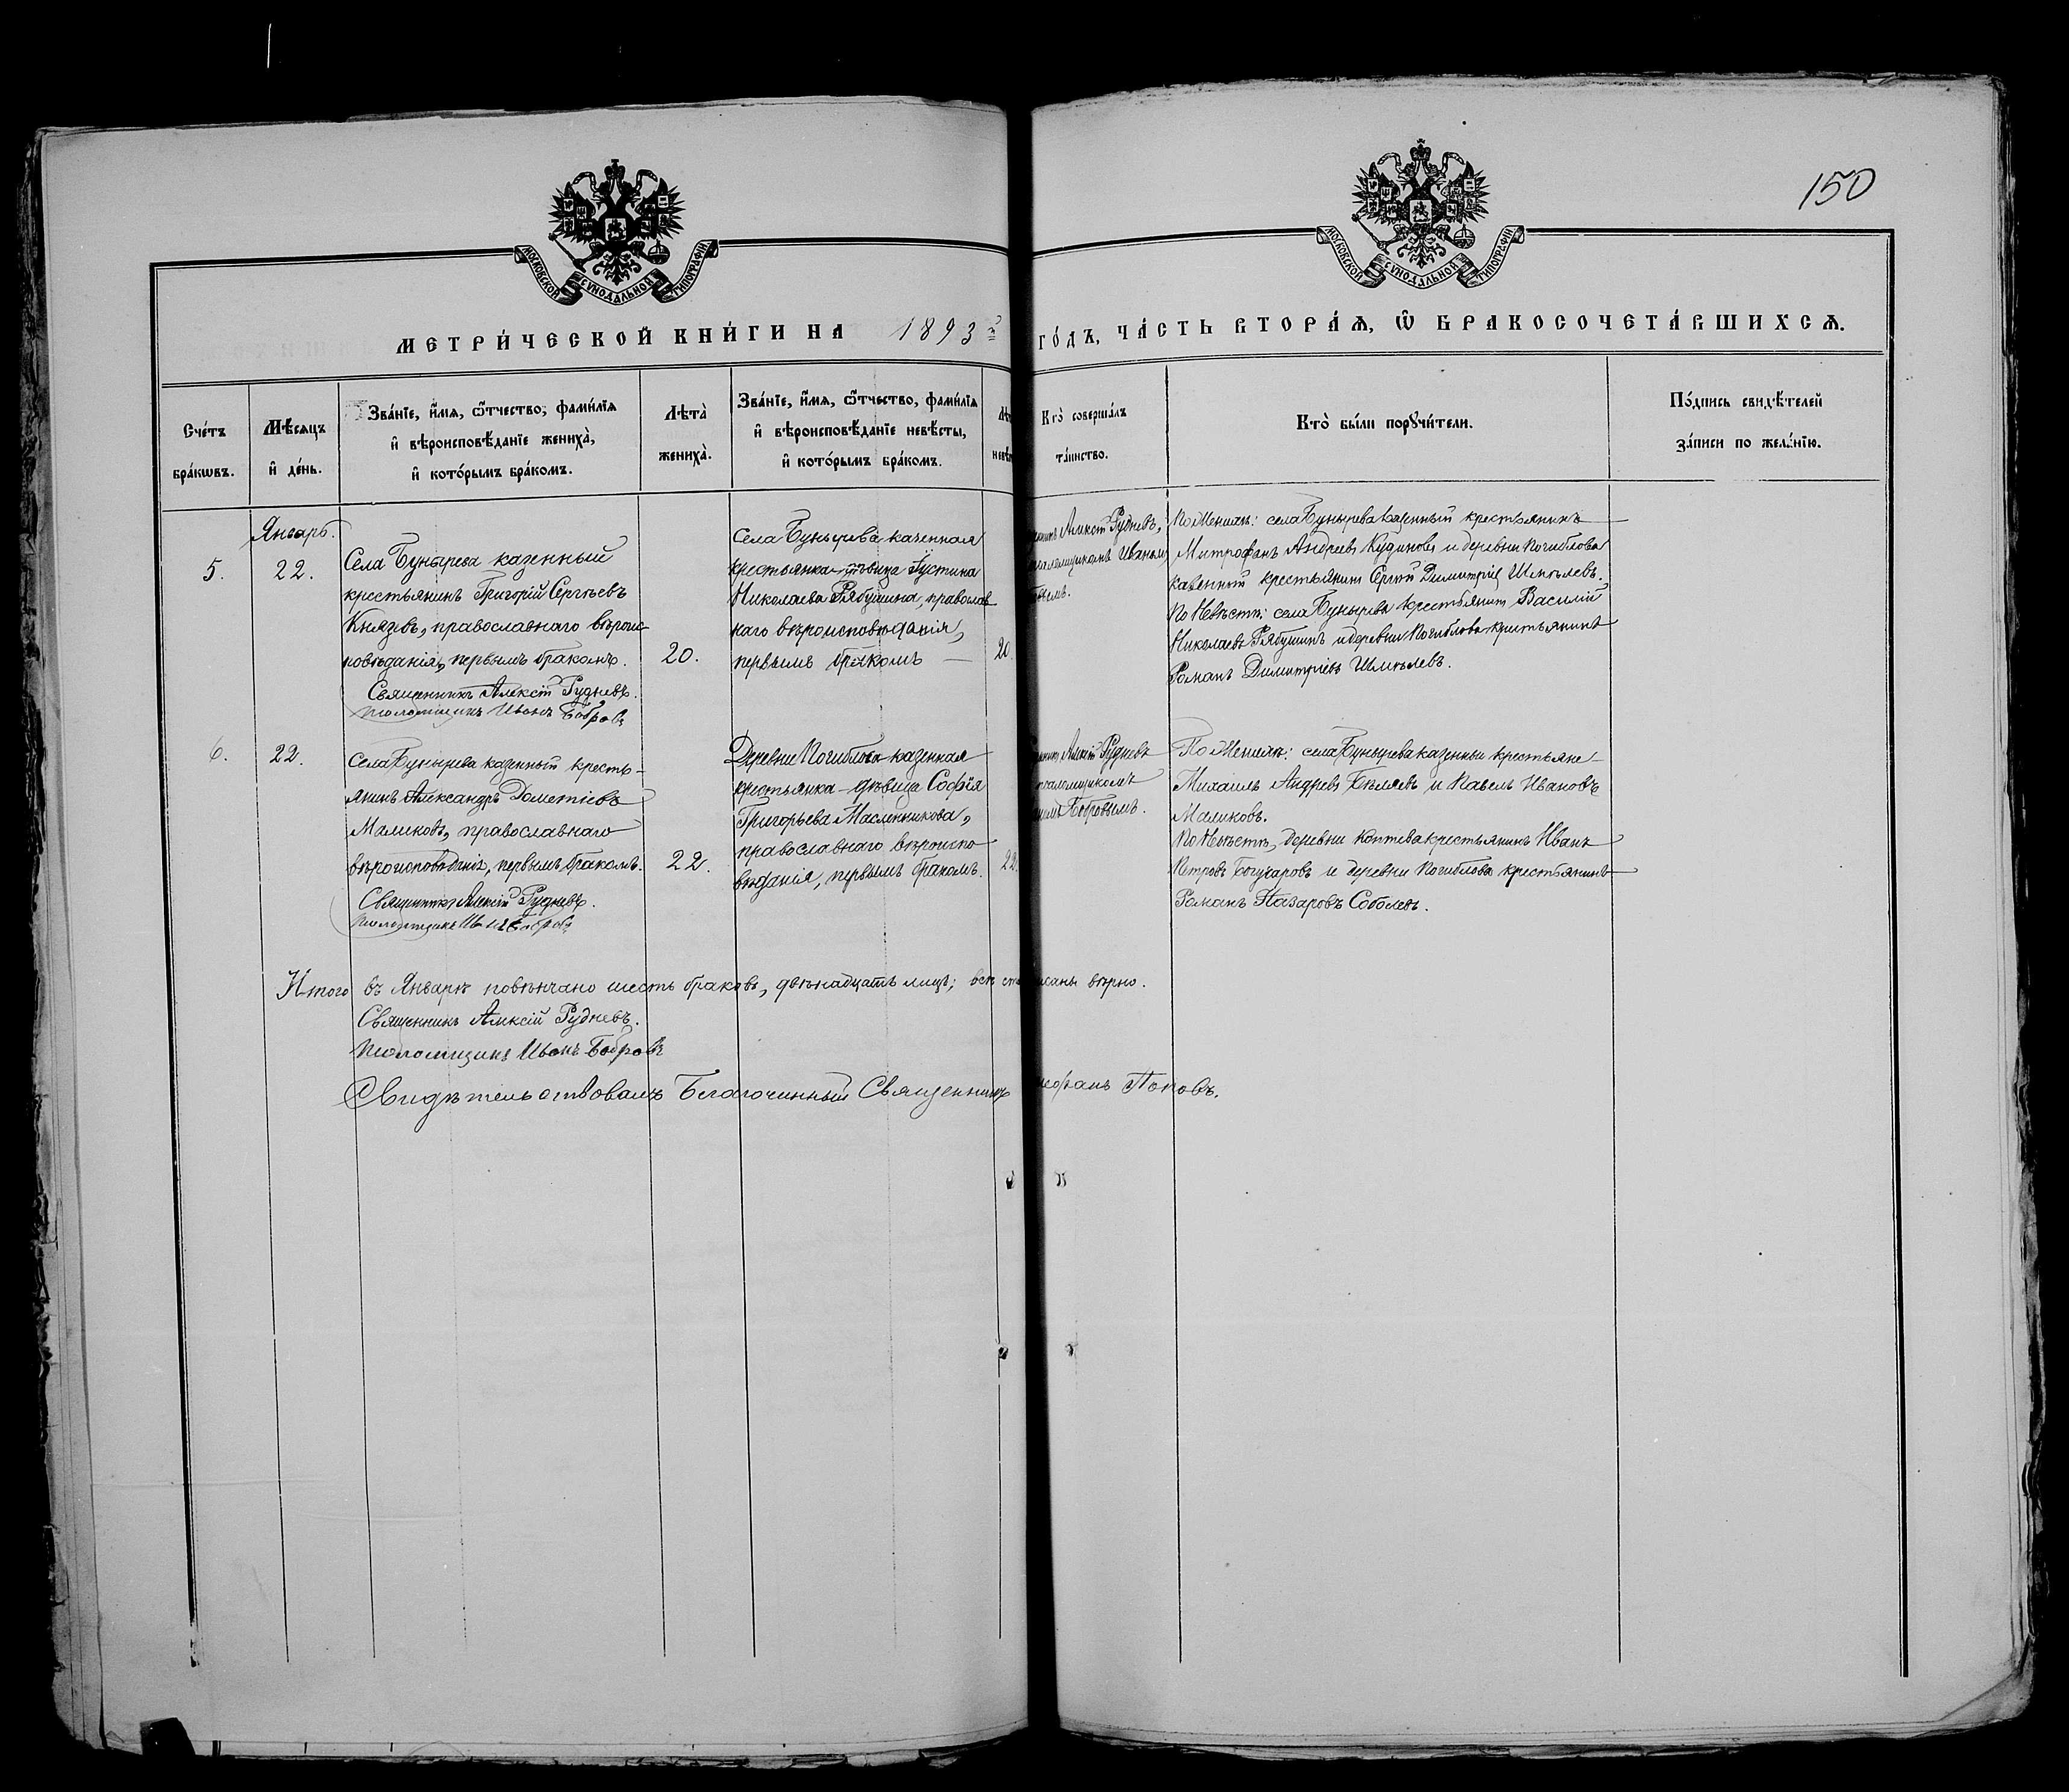 150
МОСКОВСКОЙ СѴНОДАЛЬНОЙ ТИПОГРАФІИ
МОСКОВСКОЙ СѴНОДАЛЬНОЙ ТИПОГРАФІИ
МЕТРИ́ЧЕСКОЙ КНИ́ГИ НА 1893 ГО́ДЪ, ЧА́СТЬ ВТОРА́Ѧ, Ѡ҆ БРАКОСОЧЕТА́ВШИХСѦ.
Сче́тъ
бра́кωвъ.
Мѣ́сяцъ
и҆ де́нь.
Зва́нїе, и҆́мѧ, ѻ҆́тчество, фами́лїѧ
и҆ вѣроисповѣ́данїе жениха̀,
и҆ кото́рымъ бра́комъ.
Лѣта̀
жениха̀.
Зва́нїе, и҆́мѧ, ѻ҆́тчество, фами́лїѧ
и҆ вѣроисповѣ́данїе невѣ́сты,
и҆ кото́рымъ бра́комъ.
Кто̀ соверша́лъ
та́инство.
Кто̀ бы́ли порꙋчи́тели.
По́дпись свидѣ́телей
за́писи по жела́нїю.
Январь.
5.
22.
Села Бунырева казенный
крестьянинъ Григорій Сергѣевъ
Князевъ, православнаго вѣроис
повѣданія, первымъ бракомъ.
Священникъ Алексій Рудневъ.
Псаломщикъ Иванъ Бобровъ
20.
Села Бунырева казенная
крестьянка дѣвица Іустина
Николаева Рябушина, православ
наго вѣроисповѣданія,
первымъ бракомъ —
20
Алексій Рудневъ,
Иваномъ
По Женихѣ: села Бунырева казенный крестьянинъ
Митрофанъ Андреевъ Кудиновъ и деревни Погиблова
казенный крестьянинъ Сергѣй Димитріев Шмѣлевъ.
По Невѣстѣ: села Бунырева крестьянинъ Василій
Николаевъ Рябушинъ и деревни Погиблова крестьянинъ
Романъ Димитріевъ Шмѣлевъ.
6.
22.
Села Бунырева казенный кресть-
янинъ Александръ Дометіевъ
Маликовъ, православнаго
вѣроисповѣданія, первымъ бракомъ.
Священникъ Алексій Рудневъ.
Псаломщикъ Иванъ Бобровъ
22.
Деревни Погиблова казенная
крестьянка дѣвица Софія
Григорьева Масленникова,
православнаго вѣроиспо
вѣданія, первымъ бракомъ.
22
Алексій Рудневъ
псаломщикомъ
Бобровымъ.
По Женихѣ: села Бунырева казенныи крестьяне
Михаилъ Андреевъ Бѣляевъ и Павелъ Ивановъ
Маликовъ.
По Невѣстѣ, деревни Коптева крестьянинъ Иванъ
Петровъ Богучаровъ и деревни Погиблова крестьянинъ
Романъ Назаровъ Соболевъ.
Итого въ Январѣ повѣнчано шесть браковъ, двѣнадцать лицъ; всѣ писаны вѣрно.
Священникъ Алексій Рудневъ.
Псаломщикъ Иванъ Бобровъ
Свидѣтельствовалъ Благочинный Священникъ Поповъ.